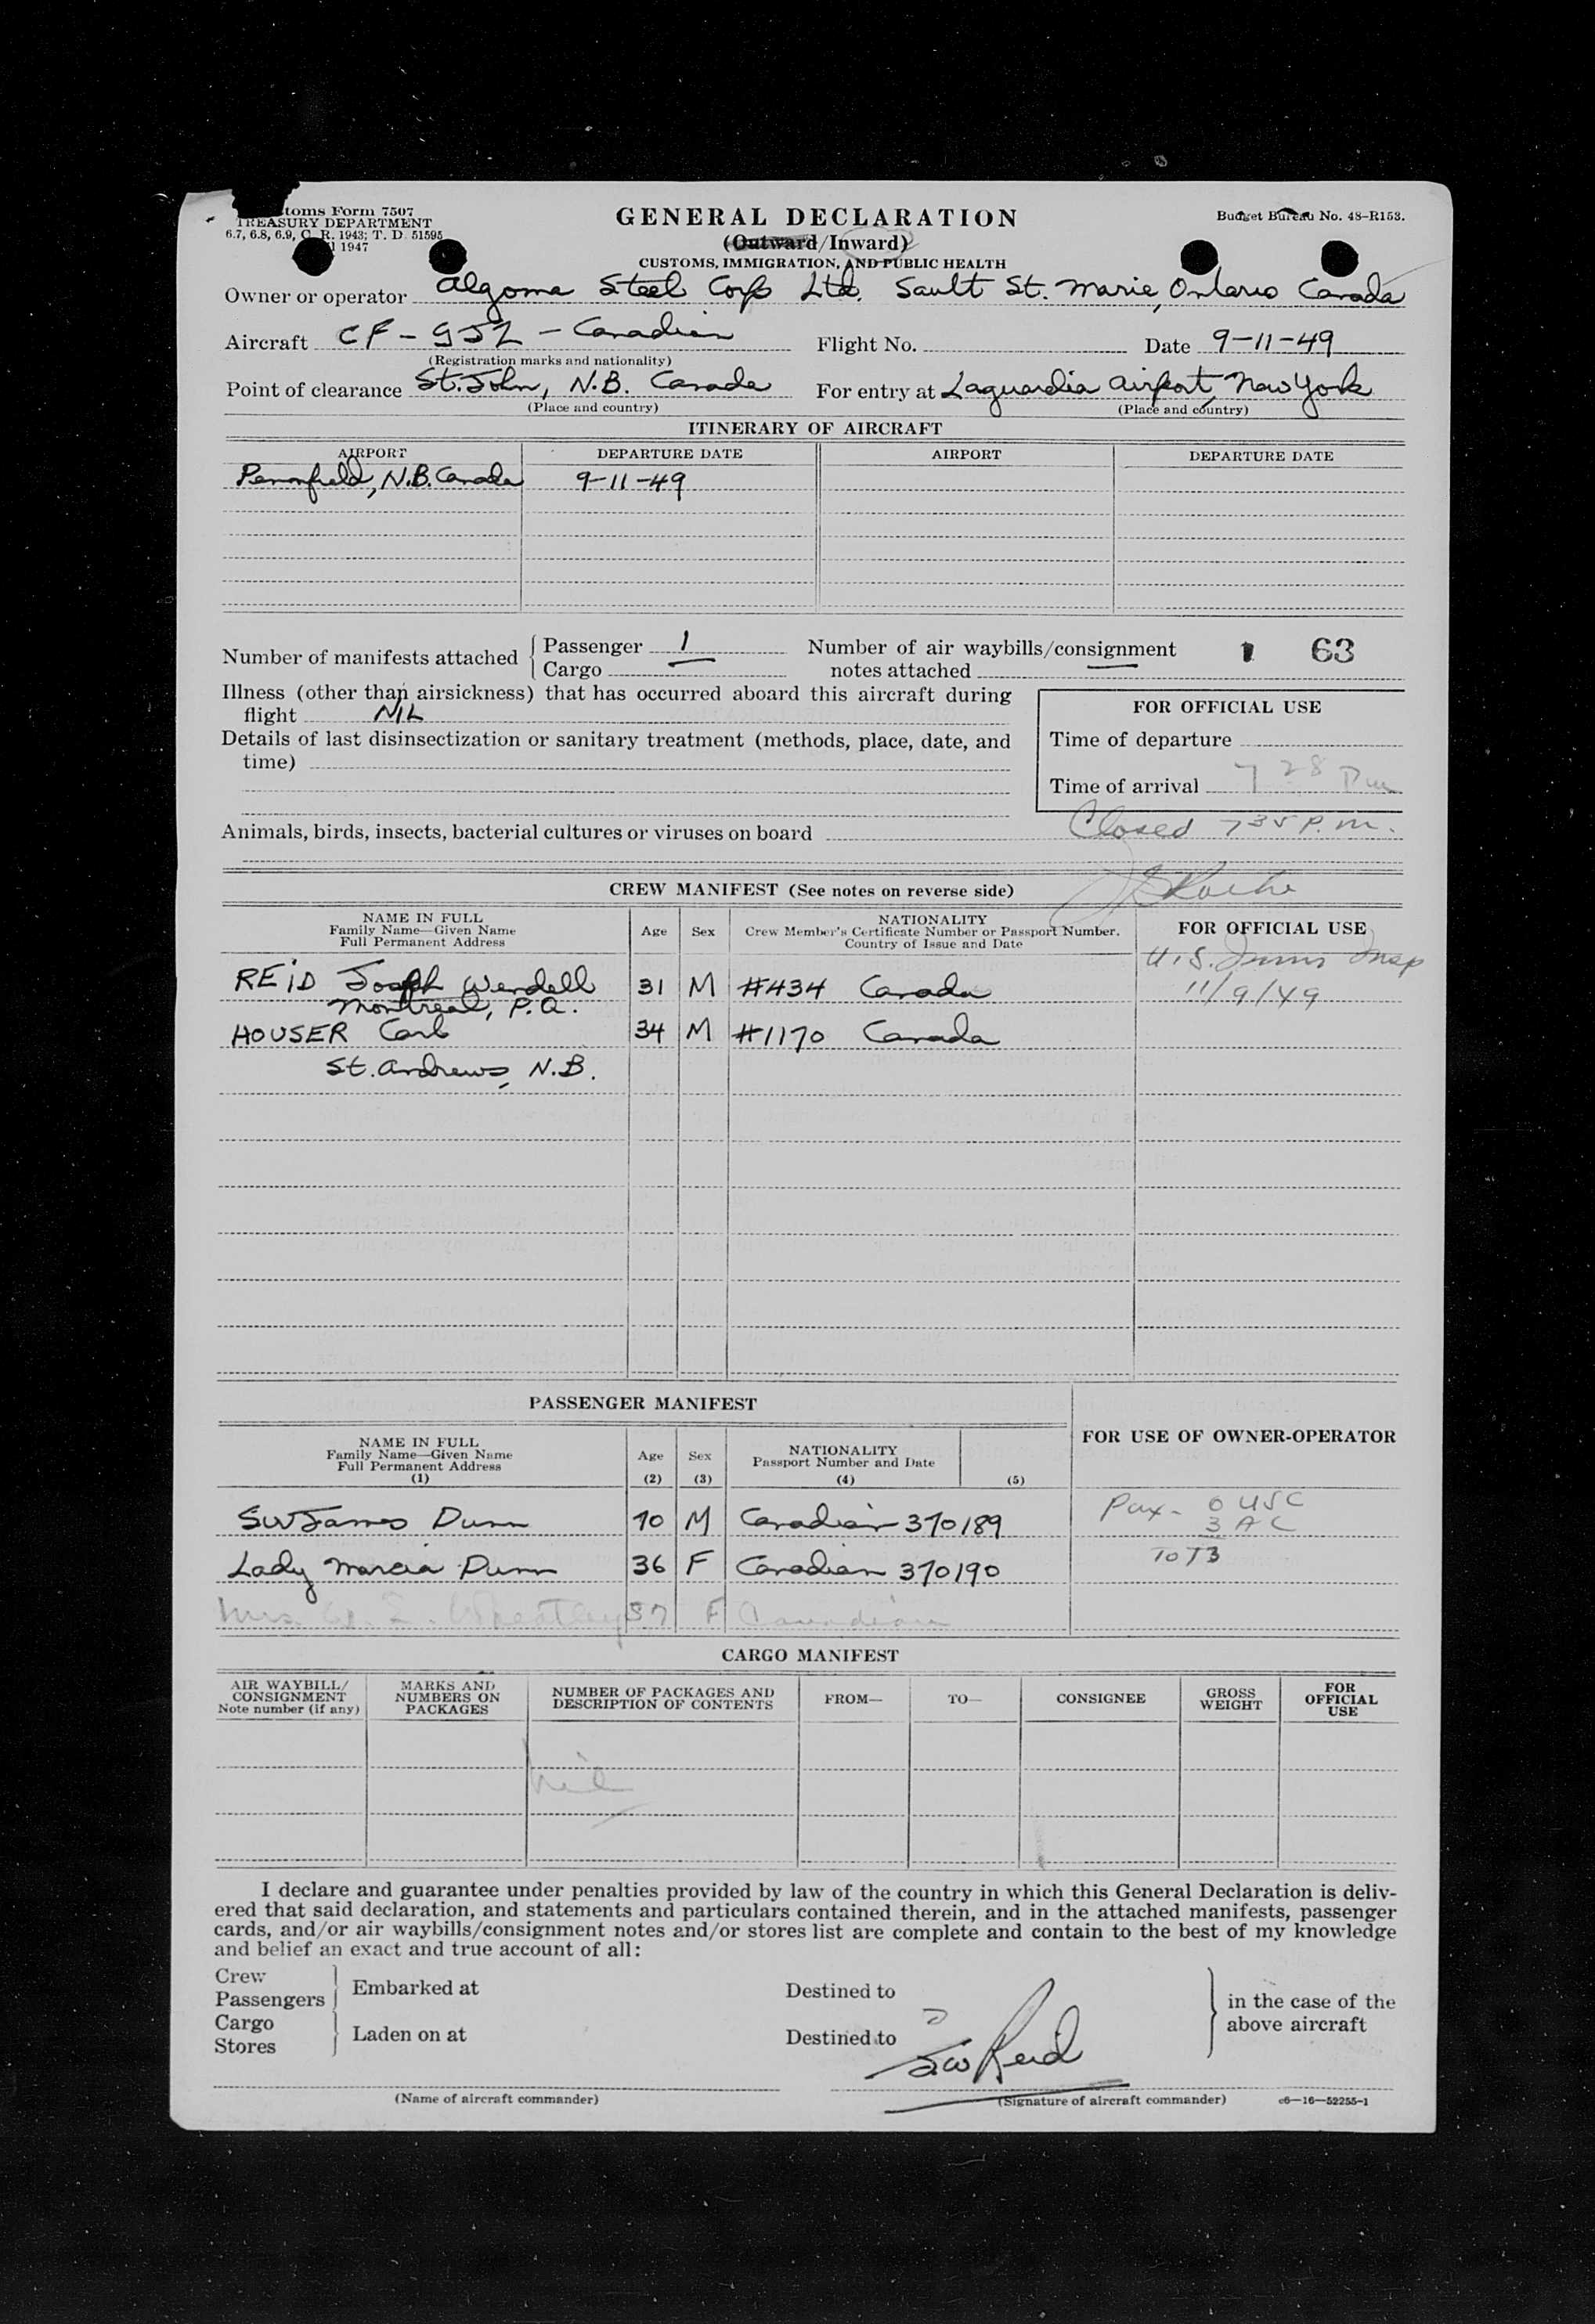 toms Form 7507
TREASURY DEPARTMENT
6.7, 6.8, 6.9, C. R. 1943; T. D. 51595
1947
GENERAL DECLARATION
(Outward/Inward)
CUSTOMS, IMMIGRATION, AND PUBLIC HEALTH
Budget Bureau No. 48–R153.
Owner or operator Algoma Steel Corp Ltd. Sault St. Marie, Ontario Canada
Aircraft CF - GJZ - Canadian Flight No. Date 9-11-49
(Registration marks and nationality)
Point of clearance St. John, N.B. Canada For entry at Laguardia Airport, New York
(Place and country) (Place and country)
ITINERARY OF AIRCRAFT
AIRPORT DEPARTURE DATE AIRPORT DEPARTURE DATE
Pennfield, N.B. Canada 9-11-49
Number of manifests attached Passenger 1 Number of air waybills/consignment 63
Cargo — notes attached —
Illness (other than airsickness) that has occurred aboard this aircraft during
flight NIL
FOR OFFICIAL USE
Details of last disinsectization or sanitary treatment (methods, place, date, and
time)
Time of departure
Time of arrival 7 28 Pm
Animals, birds, insects, bacterial cultures or viruses on board
Closed 7 35 P.m.
CREW MANIFEST (See notes on reverse side)
NAME IN FULL
Family Name—Given Name
Full Permanent Address
Age Sex
NATIONALITY
Crew Member's Certificate Number or Passport Number.
Country of Issue and Date
FOR OFFICIAL USE
U.S. Imm Insp
REID Joseph Wendell 31 M #434 Canada 11/9/49
Montreal, P.Q.
HOUSER Carl 34 M #1170 Canada
St. Andrews, N.B.
PASSENGER MANIFEST
FOR USE OF OWNER-OPERATOR
NAME IN FULL
Family Name—Given Name
Full Permanent Address
(1)
Age
(2)
Sex
(3)
NATIONALITY
Passport Number and Date
(4)
(5)
Sir James Dunn 70 M Canadian 370189 Pax- 0 USC
3 AC
Lady Marcia Dunn 36 F Canadian 370190 Tot 3
Mrs. Wheatley 57 F Canadian
CARGO MANIFEST
AIR WAYBILL/
CONSIGNMENT
Note number (if any)
MARKS AND
NUMBERS ON
PACKAGES
NUMBER OF PACKAGES AND
DESCRIPTION OF CONTENTS
FROM—
TO—
CONSIGNEE
GROSS
WEIGHT
FOR
OFFICIAL
USE
I declare and guarantee under penalties provided by law of the country in which this General Declaration is deliv-
ered that said declaration, and statements and particulars contained therein, and in the attached manifests, passenger
cards, and/or air waybills/consignment notes and/or stores list are complete and contain to the best of my knowledge
and belief an exact and true account of all:
Crew
Passengers Embarked at Destined to in the case of the
Cargo above aircraft
Stores Laden on at Destined to
J.W Reid
(Name of aircraft commander) (Signature of aircraft commander) c6—16—52255-1